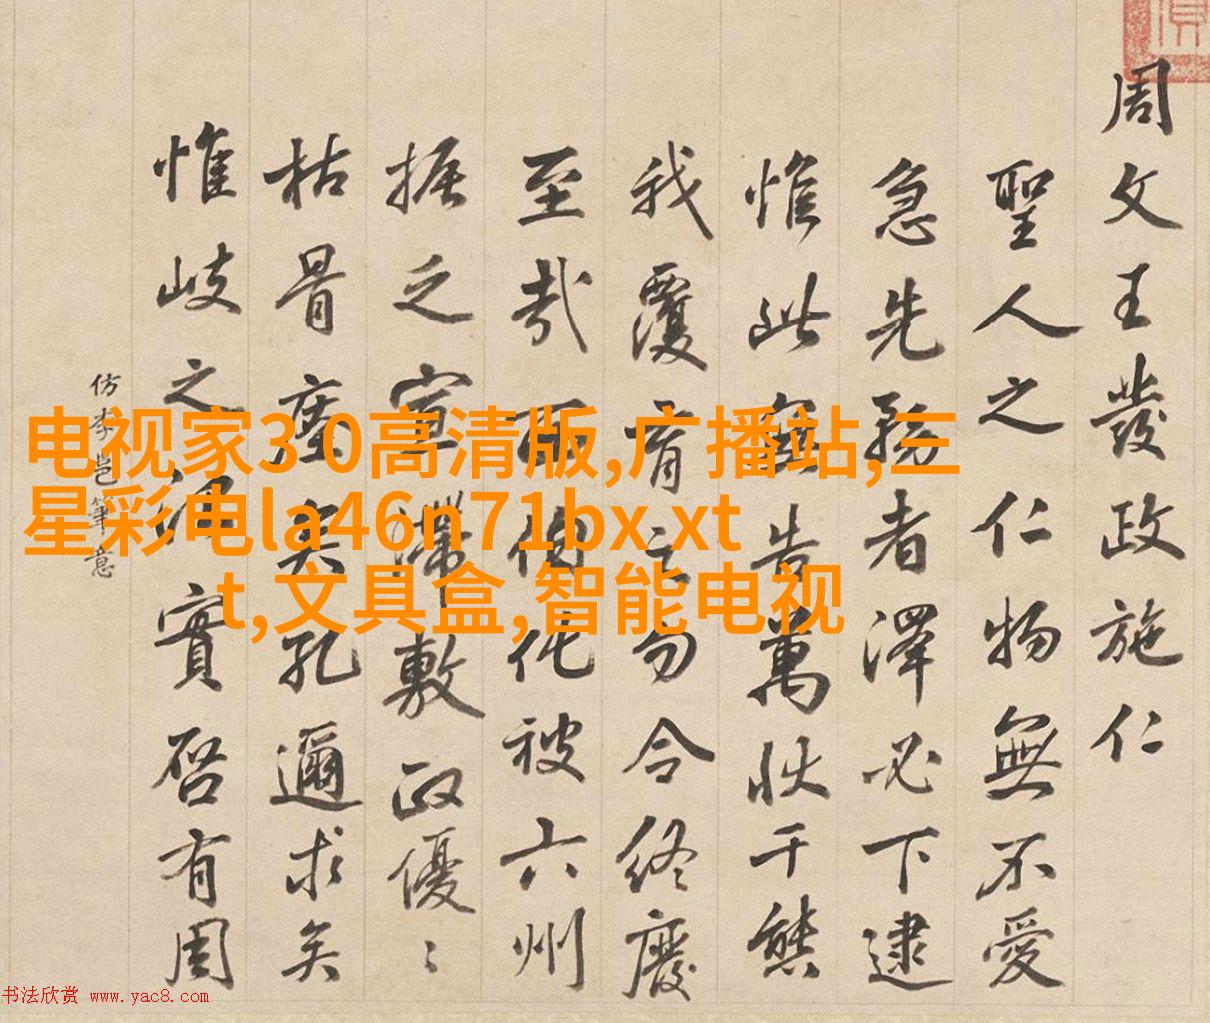 周文王發政施仁
聖人之仁物無不愛
急先務者澤必下逮
惟此窮告萬狀千態
我覆育之勿令終廢
至哉西伯化被六州
振乏宣滯敷政優〻
枯骨瘞矣孔邇求矣
惟岐之實啓有周
仿李邕筆意
电视家3 0高清版,广播站,三
星彩电la46n71bx xt
t,文具盒,智能电视
书法欣赏 www.yac8.com